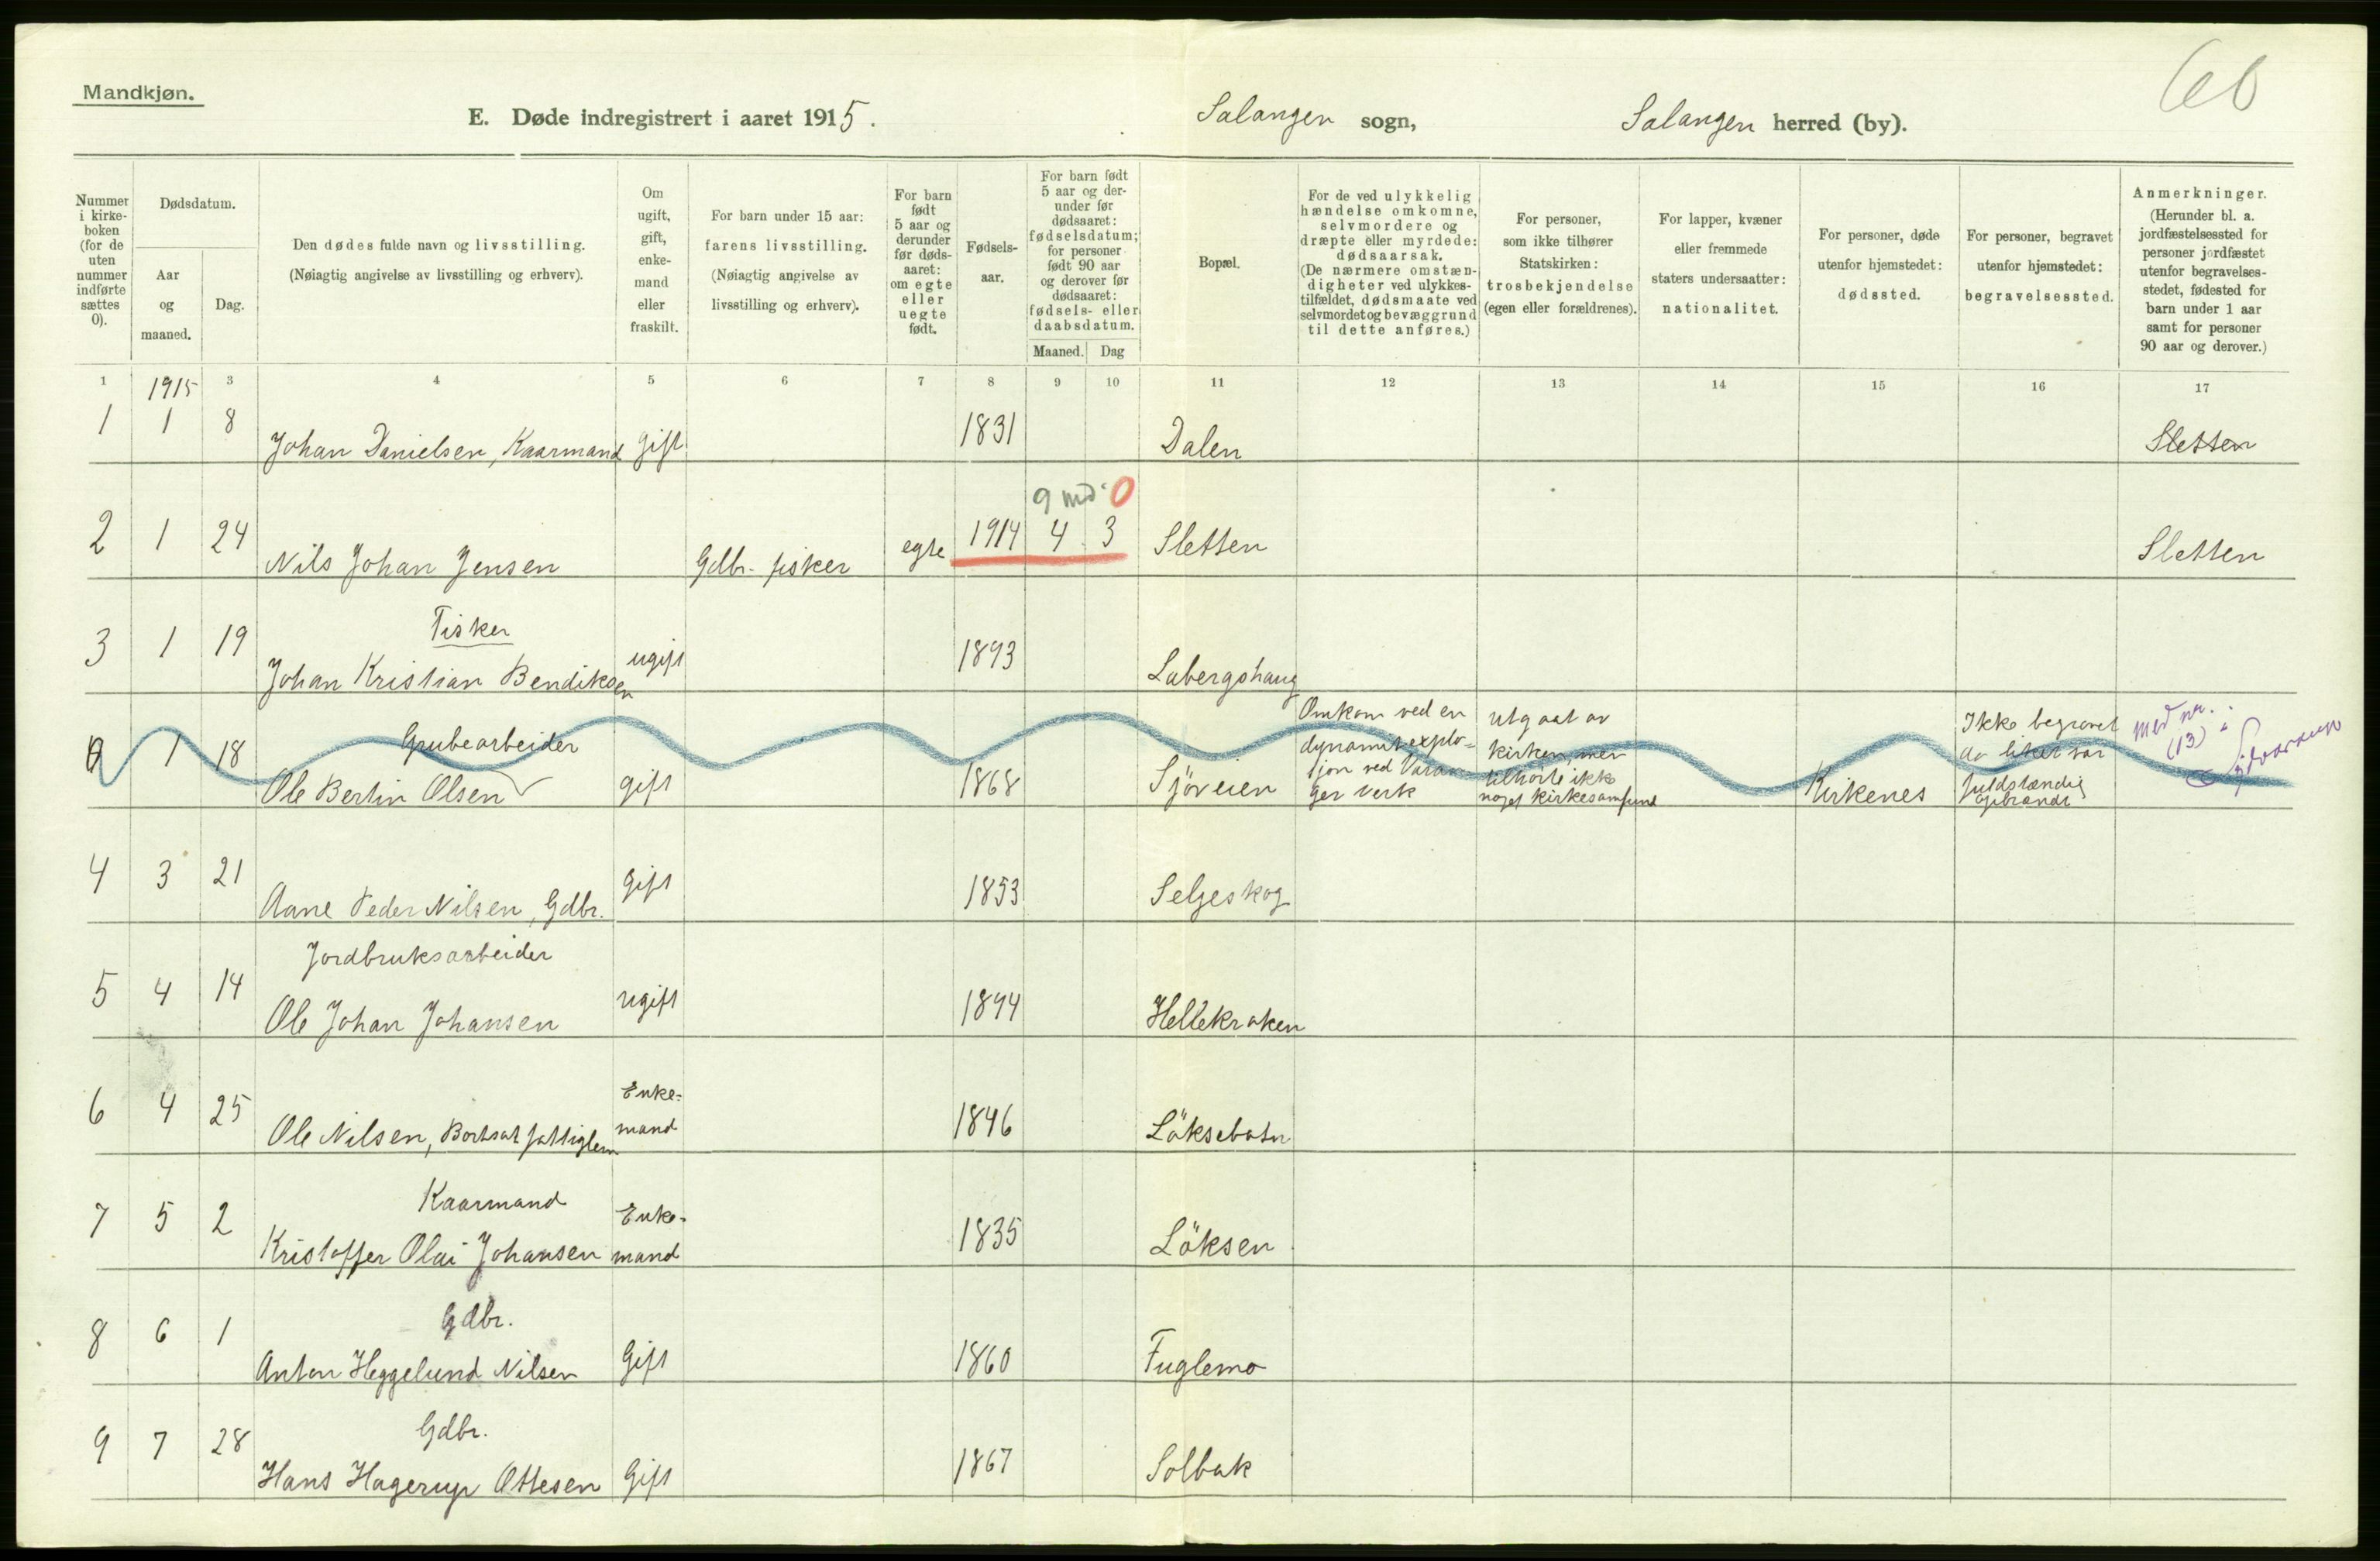 60
Mandkjøn.
E. Døde indregistrert i aaret 1915.
Salangen sogn, Salangen herred (by).
Nummer i kirke-boken (for de uten nummer indførte sættes 0).
Dødsdatum.
Aar og maaned.
Dag.
Den dødes fulde navn og livsstilling.
(Nøiagtig angivelse av livsstilling og erhverv).
Om ugift, gift, enke-mand eller fraskilt.
For barn under 15 aar:
farens livsstilling.
(Nøiagtig angivelse av livsstilling og erhverv).
For barn født 5 aar og derunder før døds-aaret: om egte eller uegte født.
Fødsels-aar.
For barn født 5 aar og der-under før dødsaaret: fødselsdatum; for personer født 90 aar og derover før dødsaaret: fødsels- eller daabsdatum.
Maaned. Dag
Bopæl.
For de ved ulykkelig hændelse omkomne, selvmordere og dræpte eller myrdede: dødsaarsak.
(De nærmere omstæn-digheter ved ulykkes-tilfældet, dødsmaate ved selvmordet og bevæggrund til dette anføres.)
For personer, som ikke tilhører Statskirken: trosbekjendelse (egen eller forældrenes).
For lapper, kvæner eller fremmede staters undersaatter: nationalitet.
For personer, døde utenfor hjemstedet: dødssted.
For personer, begravet utenfor hjemstedet: begravelsessted.
Anmerkninger.
(Herunder bl. a. jordfæstelsessted for personer jordfæstet utenfor begravelses-stedet, fødested for barn under 1 aar samt for personer 90 aar og derover.)
1 1915 3 4 5 6 7 8 9 10 11 12 13 14 15 16 17
1 1 8 Johan Danielsen, Kaarmand gift 1831 Dalen Sletten
9 md. 0
2 1 24 Nils Johan Jensen Gdbr- fisker egte 1914 4 3 Sletten Sletten
Fisker
3 1 19 Johan Kristian Bendiksen ugift 1893 Labergshaug
Grubearbeider
0 1 18 Ole Bertin Olsen gift 1868 Sjöveien
Omkom ved en
dynamitexplo-
sjon ved Varan-
ger verk
utgaat av
kirken, men
tilhörte ikke
noget kirkesamfund
Kirkenes
Ikke begravet
da liket var
fuldstændig
opbrændt
med nr.
(13) i
4 3 21 Aane Peder Nilsen, Gdbr. Gift 1853 Seljeskog
Jordbruksarbeider
5 4 14 Ole Johan Johansen ugift 1894 Hellekraken
6 4 25 Ole Nilsen, Bortsat fattiglem Enke-mand 1846 Löksebotn
Kaarmand
7 5 2 Kristoffer Olai Johansen Enke-mand 1835 Löksen
Gdbr.
8 6 1 Anton Heggelund Nilsen Gift 1860 Fuglemo
Gdbr.
9 7 28 Hans Hagerup Ottesen Gift 1867 Solbak